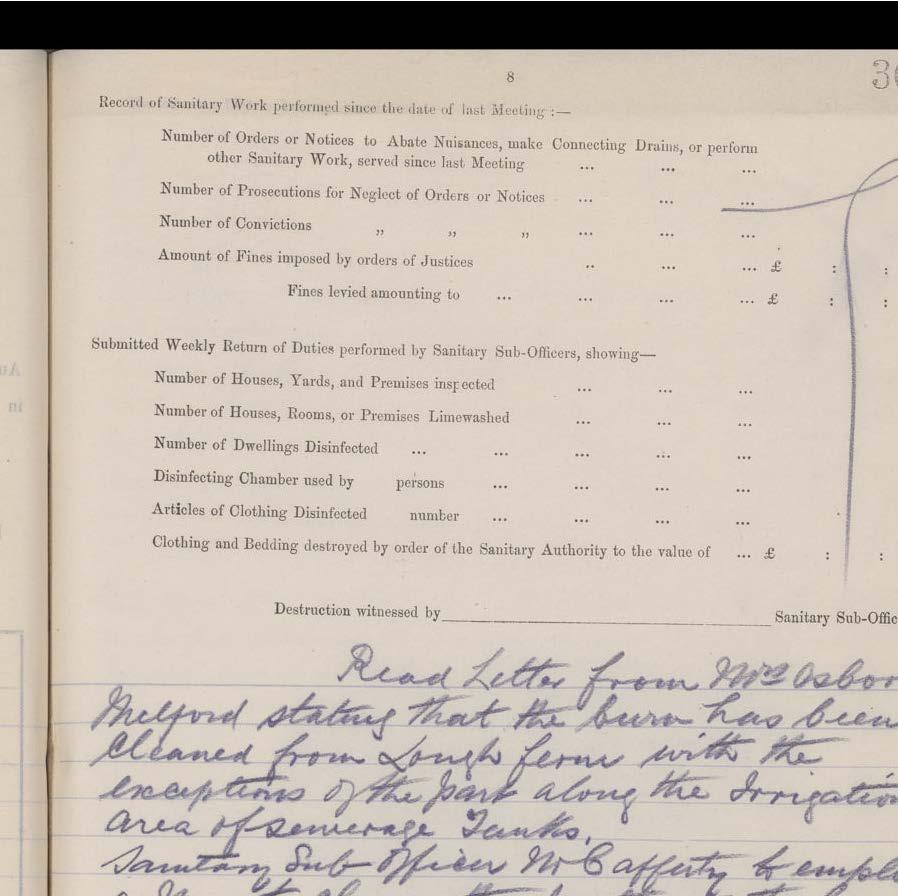 8
Record of Sanitary Work performed since the date of last Meeting :—
Number of Orders or Notices to Abate Nuisances, make Connecting Drains, or perform
other Sanitary Work, served since last Meeting ... ... ...
Number of Prosecutions for Neglect of Orders or Notices ... ... ...
Number of Convictions „ „ „ ... ... ...
Amount of Fines imposed by orders of Justices .. ... ... £ : :
Fines levied amounting to ... ... ... ... £ : :
Submitted Weekly Return of Duties performed by Sanitary Sub-Officers, showing—
Number of Houses, Yards, and Premises inspected ... ... ...
Number of Houses, Rooms, or Premises Limewashed ... ... ...
Number of Dwellings Disinfected ... ... ... ... ...
Disinfecting Chamber used by persons ... ... ... ...
Articles of Clothing Disinfected number ... ... ... ...
Clothing and Bedding destroyed by order of the Sanitary Authority to the value of ... £ : :
Destruction witnessed by Sanitary Sub-Offic
Read Letter from Mrs Osbor
Milford stating that the burn has been
cleaned from Lough fern with the
exceptions of the part along the Irrigation
area of sewerage Tanks.
Sanitary Sub Officer McCafferty to empl